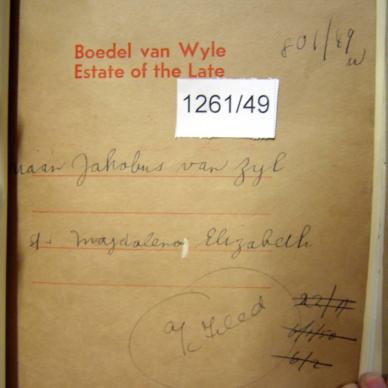 Boedel van Wyle
Estate of the Late
801/49
1261/49
Jakobus van Zyl
Magdalena Elizabeth
a/c Filed
22/11
6/1/50
6/2